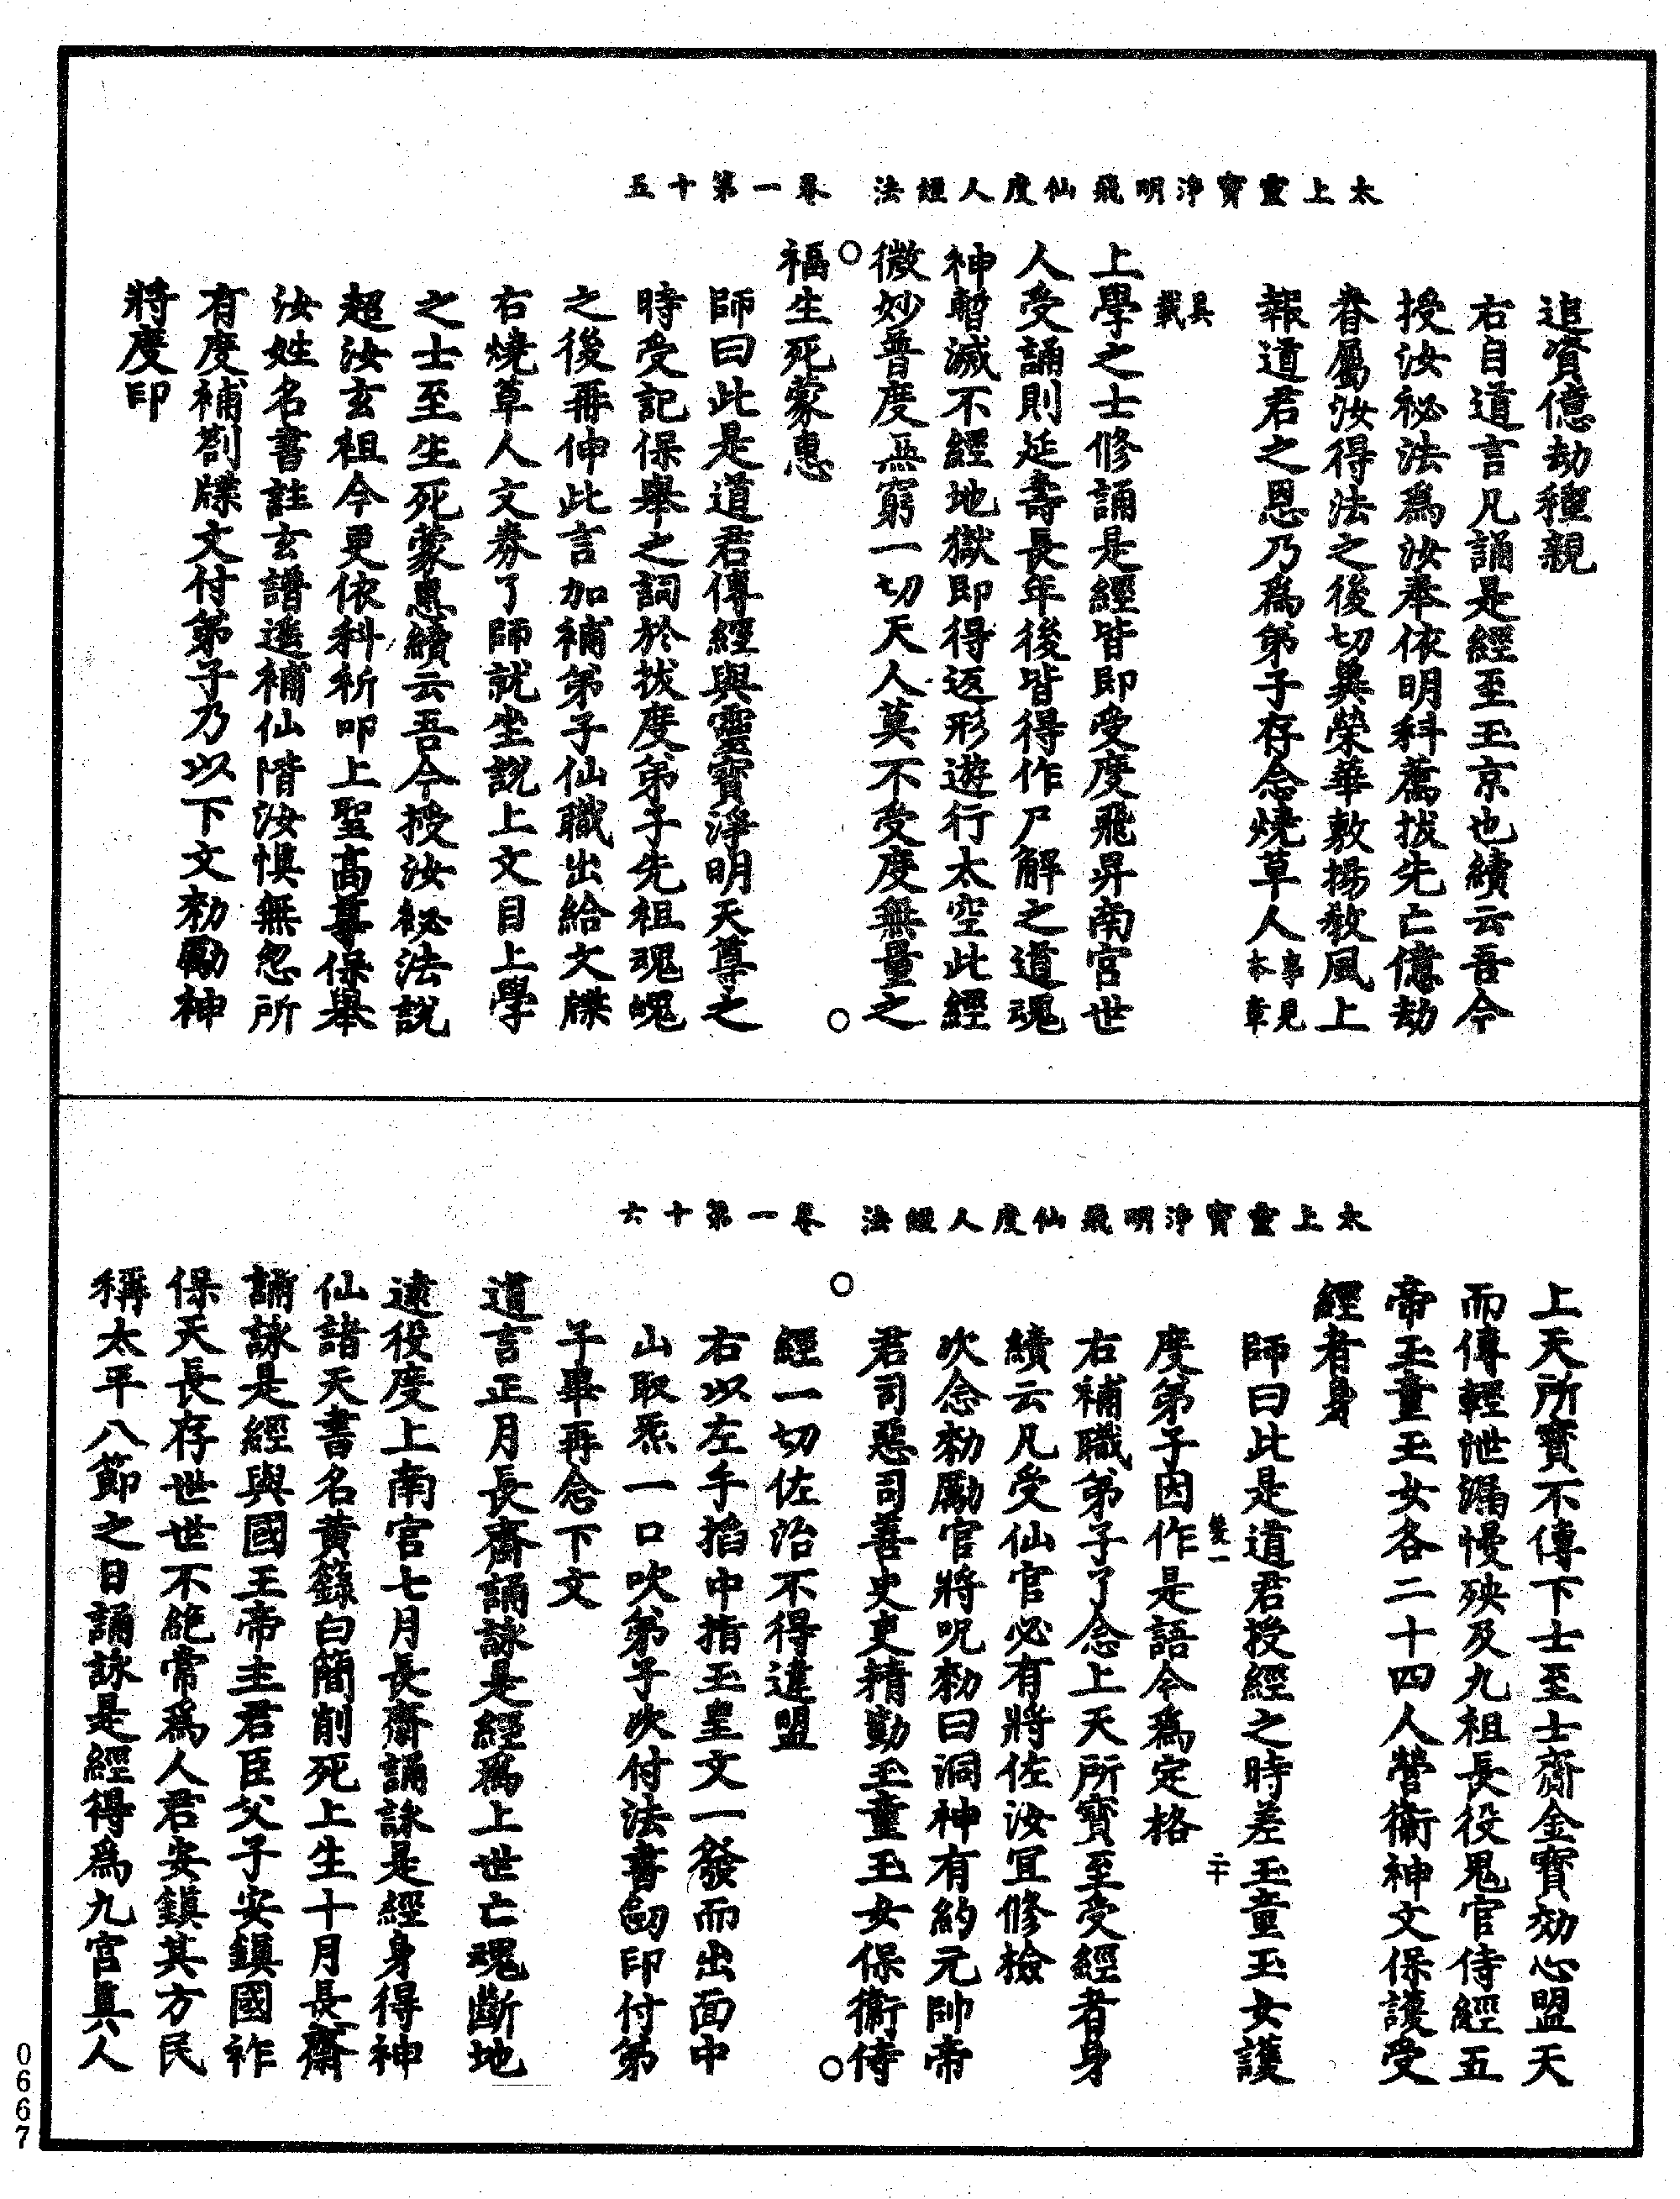 太上靈寶淨明飛仙度人經法 卷一第十五
追資億劫種親
右自道言凡誦是經至玉京也續云吾今
授汝祕法爲汝奉依明科薦拔先亡億劫
眷屬汝得法之後切巽榮華敷揚教風上
報道君之恩乃爲弟子存念燒草人事見本章
具載
上學之士修誦是經皆即受度飛昇南宮世
人受誦則延壽長年後皆得作尸解之道魂
神暫滅不經地獄即得返形遊行太空此經
微妙普度無窮一切天人莫不受度無量之
福生死蒙惠
師曰此是道君傳經與靈寶淨明天尊之
時受記保舉之詞於拔度弟子先祖魂魄
之後再伸此言加補弟子仙職出給文牒
右燒草人文券了師就坐說上文目上學
之士至生死蒙惠續云吾今授汝祕法説
超汝玄祖今更依科祈叩上聖高尊保舉
汝姓名書註玄譜遷補仙階汝惧無忽所
有度補劄牒文付弟子乃以下文勑勵神
將度印
太上靈寶淨明飛仙度人經法 卷一第十六
上天所寶不傳下士至士齋金寶効心盟天
而傳輕泄漏慢殃及九祖長役鬼官侍經五
帝玉童玉女各二十四人營衛神文保護受
經者身
師曰此是道君授經之時差玉童玉女護
雙一 二十
度弟子因作是語今爲定格
右補職弟子了念上天所寶至受經者身
續云凡受仙官必有將佐汝冝修檢
次念勑勵官將呪勑曰洞神有約元帥帝
君司惡司善史吏精勤玉童玉女保衛侍
經一切佐治不得違盟
右以左手掐中指玉皇文一發而出面中
山取炁一口吹弟子次付法書劒印付第
子畢再念下文
道言正月長齋誦詠是經爲上世亡魂斷地
逮役度上南宮七月長齋誦詠是經身得神
仙諸天書名黃籙白簡削死上生十月長齋
誦詠是經與國王帝主君臣父子安鎮國祚
保天長存世世不絶常爲人君安鎮其方民
稱太平八節之日誦詠是經得爲九宮真人
0667